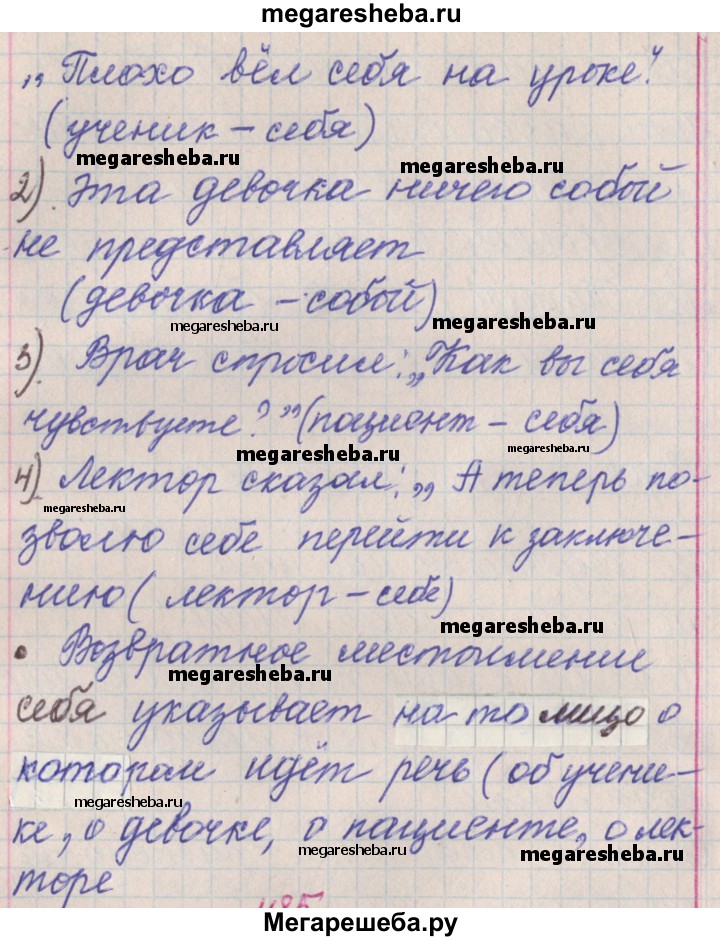 megaresheba.ru
„Плохо вёл себя на уроке“
(ученик – себя)
megaresheba.ru
megaresheba.ru
2). Эта девочка ничего собой
не представляет
(девочка – собой)
megaresheba.ru
megaresheba.ru
3). Врач спросил: „Как вы себя
чувствуете?” (пациент – себя)
megaresheba.ru
megaresheba.ru
4) Лектор сказал: „А теперь по-
megaresheba.ru
зволю себе перейти к заключе-
megaresheba.ru
нию (лектор – себе)
• Возвратное местоимение
megaresheba.ru
себя указывает на то лицо о
котором идёт речь (об учени-
megaresheba.ru
ке, о девочке, о пациенте, о лек-
megaresheba.ru
megaresheba.ru
торе
485
Мегарешеба.ру